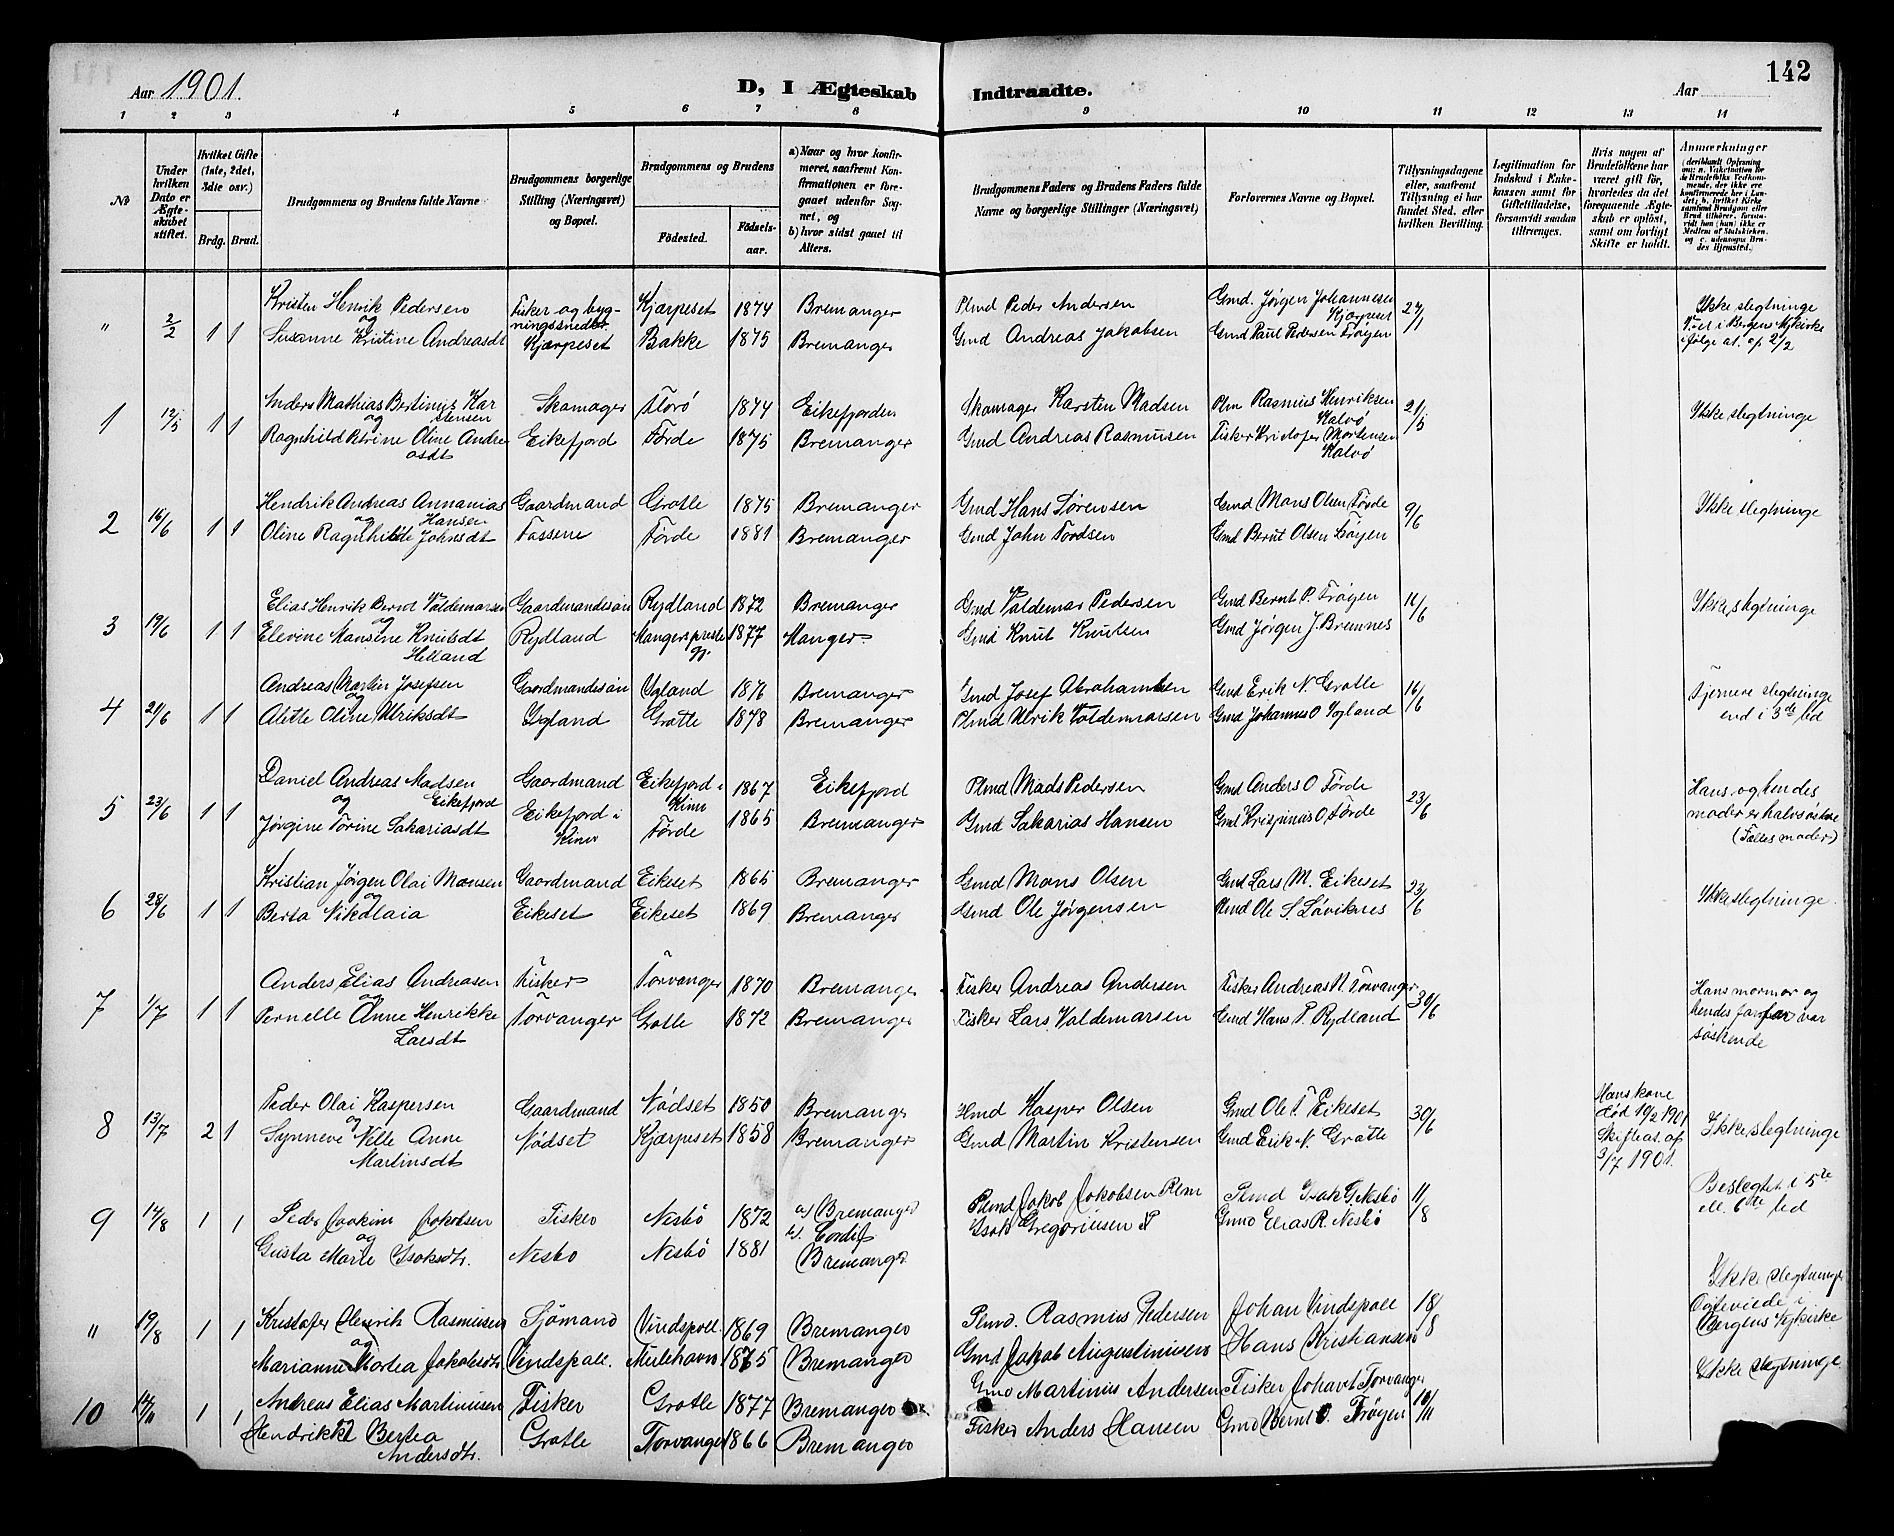 142
Aar 1901. D, I Ægteskab Indtraadte. Aar
1 2 3 4 5 6 7 8 9 10 11 12 13 14
№
Under hvilken Dato er Ægteskabet stiftet.
Hvilket Gifte (1ste, 2det, 3die osv.)
Brdg. Brud.
Brudgommens og Brudens fulde Navne
Brudgommens borgerlige Stilling (Næringsvei) og Bopæl.
Brudgommens og Brudens
Fødested. Fødselsaar.
a) Naar og hvor konfirmeret, saafremt Konfirmationen er foregaaet udenfor Sognet, og
b) hvor sidst gaaet til Alters.
Brudgommens Faders og Brudens Faders fulde Navne og borgerlige Stillinger (Næringsvei)
Forlovernes Navne og Bopæl.
Tillysningsdagene eller, saafremt Tillysning ei har fundet Sted, efter hvilken Bevilling.
Legitimation for Indskud i Enkekassen samt for Giftetilladelse, forsaavidt saadan tiltrænges.
Hvis nogen af Brudefolkene har været gift før, hvorledes da det foregaaende Ægteskab er opløst, samt om lovligt Skifte er holdt.
Anmærkninger
" 2/2 1 1 Kristen Henrik Pedersen Fisker og byg- Kjærpeset 1874 Bremanger Plmd Peder Andersen Gmd. Jørgen Johannesen 27/1 Ikke slegtninge
og ningssnedker Kjærpeset Viet i Bergens Nykirke
Susanne Kristine Andreasdt Kjærpeset Bakke 1875 Bremanger Gmd Andreas Jakobsen Gmd Paul Pedersen Frøyen ifølge at. af 2/2
1 12/5 1 1 Anders Mathias Bertinus Kar Skomager Florø 1874 Eikefjorden Skomager Karsten Madsen Plm Rasmus Henriksen 21/5 Ikke slegtninge
og stensen Kalvø
Ragnhild Petrine Oline Andre Eikefjord Førde 1875 Bremanger Gmd Andreas Rasmusen Fisker Kristofer Mortensen
asdt Kalvø
2 16/6 1 1 Hendrik Andreas Annanias Gaardmand Grotle 1875 Bremanger Gmd Hans Sørensen Gmd Mons Olsen Førde 9/6 Ikke slegtninge
og Hansen
Oline Ragnhilde Johnsdt Fossene Førde 1881 Bremanger Gmd John Tordsen Gmd Bernt Olsen Frøyen
3 19/6 1 1 Elias Henrik Bernt Valdemarsen Gaardmandssøn Rydland 1872 Bremanger Gmd Valdemar Pedersen Gmd Bernt P. Frøyen 16/6 Ikke slegtninge
og
Elevine Mansine Knutsdt Rydland Mangers preste 1877 Manger Gmd Knut Knutsen Gmd Jørgen J. Bremnes
Helland gj.
4 21/6 1 1 Andreas Martin Josefsen Gaardmandssøn Igland 1876 Bremanger Gmd Josef Abrahamsen Gmd Erik N. Grotle 16/6 Fjernere slegtninge
og end i 3de led
Alette Oline Ulriksdt Igland Grotle 1878 Bremanger Plmd Ulrik Valdemarsen Gmd Johannes O Igland
5 23/6 1 1 Daniel Andreas Madsen Gaardmand Eikefjord i 1867 Eikefjord Plmd Mads Pedersen Gmd Anders O Førde 23/6 Hans og hendes
og Eikefjord Kinn moder er halvsøskne
Jørgine Torine Sakariasdt Eikefjord i Førde 1865 Bremanger Gmd Sakarias Hansen Gmd Krispinus O. Førde (Fælles moder)
Kinn
6 28/6 1 1 Kristian Jørgen Olai Monsen Gaardmand Eikeset 1865 Bremanger Gmd Mons Olsen Gmd Lars M. Eikeset 23/6 Ikke slegtninge.
og
Berta Nikolaia Eikeset Eikeset 1869 Bremanger Gmd Ole Jørgensen Plmd Ole S. Løviknes
7 1/7 1 1 Anders Elias Andreasen Fisker Torvanger 1870 Bremanger Fisker Andreas Andersen Fisker Andreas N. Torvanger 30/6 Hans mormor og
og hendes farfar var
Pernelle Anne Henrikke Torvanger Grotle 1872 Bremanger Fisker Lars Valdemarsen Gmd Hans P. Rydland søskende
Larsdt
8 13/7 2 1 Peder Olai Kaspersen Gaardmand Nødset 1850 Bremanger Hmd Kasper Olsen Gmd Ole T. Eikeset 30/6 Hans kone død 19/2 1901 Skifteat. af 3/7 1901. Ikke slegtninge
og
Synneve Nelle Anne Nødset Kjærpeset 1858 Bremanger Gmd Martin Kristensen Gmd Erik N. Grotle
Martinsdt
9 14/8 1 1 Peder Joakim Jakobsen Fisker Nesbø 1872 a) Bremanger Plmd Jakob Jakobsen Plm Plmd Isak G Nesbø 11/8 Beslegtet i 5te
og b) ell. 6te led
Gusta Marie Isaksdtr. Nesbø Nesbø 1881 Bremanger Isak Gregoriusen Gmd Elias R. Nesbø
" 19/8 1 1 Kristofer Henrik Rasmusen Sjømand Vindspoll 1869 Bremanger Plmd. Rasmus Pedersen Johan Vindspoll 18/8 Ikke slegtninge
og Egteviede i
Marianne Mortea Jakobsdtr Vindspoll. Mulehavn 1875 Bremanger Gmd Jakob Augustinusen Hans Kristiansen Bergens Nykirke
10 1 1 Andreas Elias Martinusen Fisker Grotle 1877 Bremanger Gmd Martinus Andersen Fisker Johan Torvanger 10/11 Ikke slegtninge.
Hendrikke Bertea Grotle Torvanger 1866 Bremanger Fisker Anders Hansen Gmd Bernt O. Frøyen
Andersdtr.